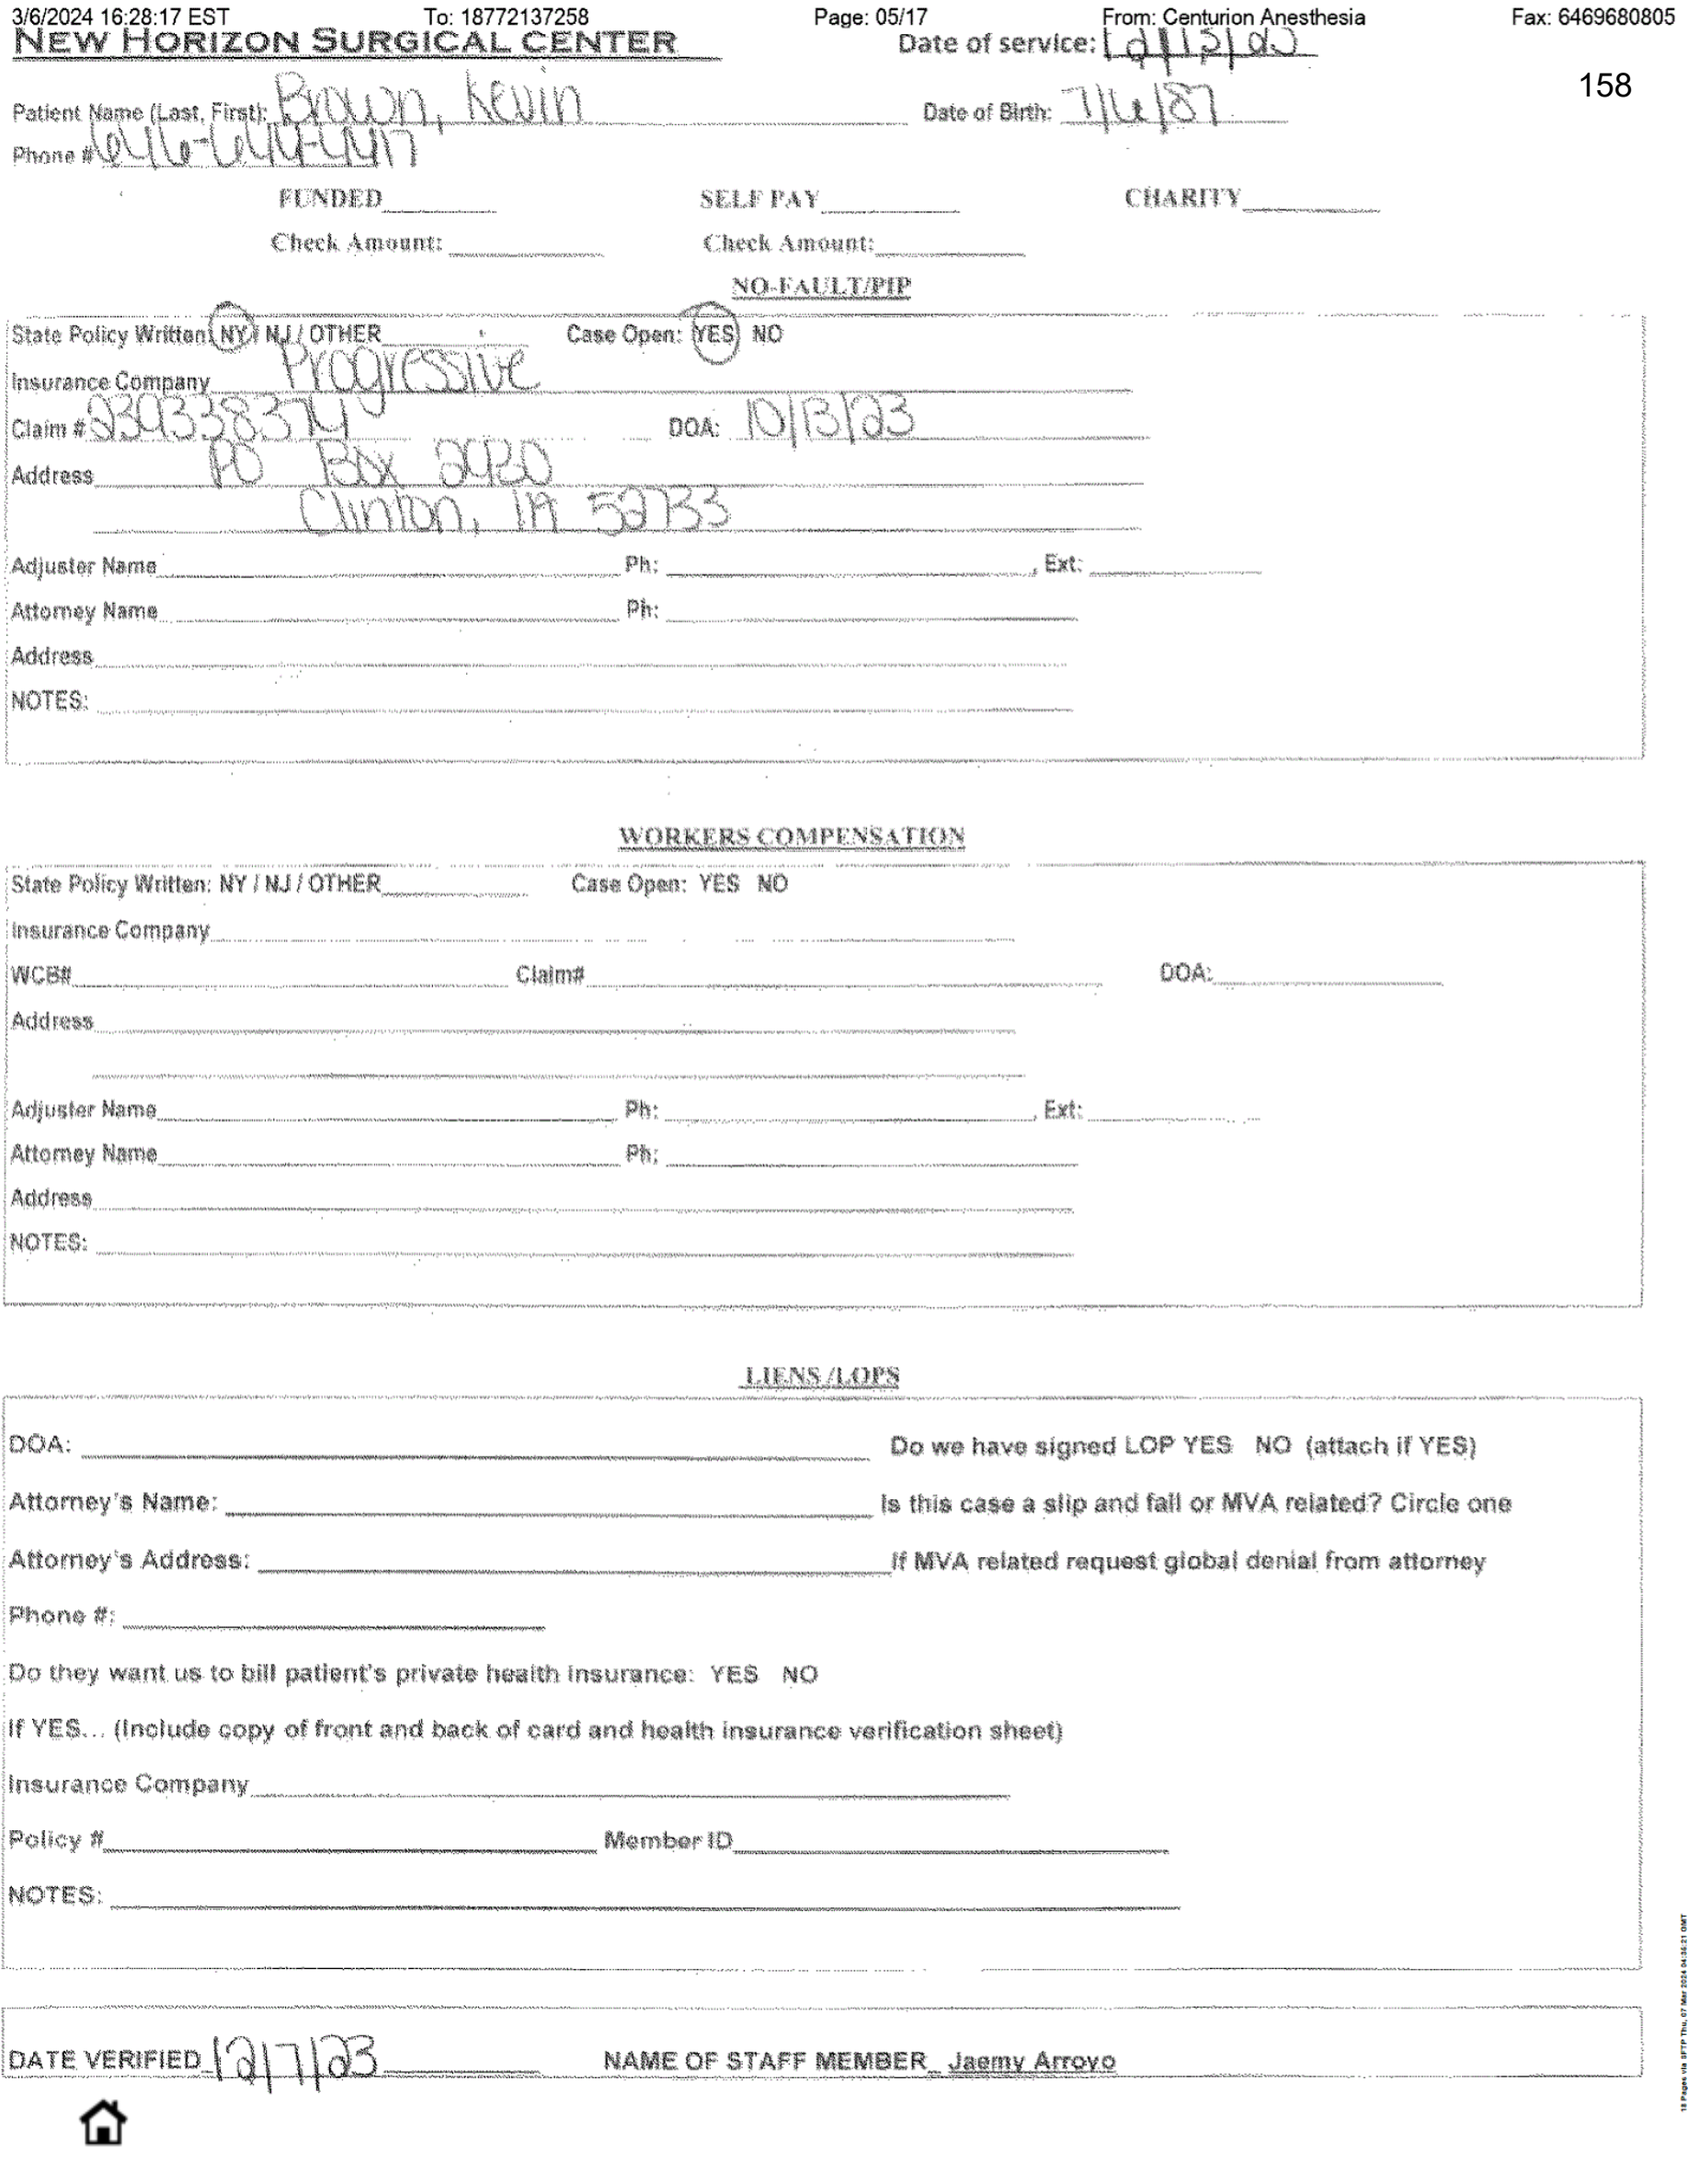 3/6/2024 16:28:17 EST To: 18772137258 Page: 05/17 From: Centurion Anesthesia Fax: 6469680805
NEW HORIZON SURGICAL CENTER Date of service: 12/13/23
158
Patient Name (Last, First): Brown, Kevin Date of Birth: 7/6/87
Phone # 646-644-4417
FUNDED SELF PAY CHARITY
Check Amount: Check Amount:
NO-FAULT/PIP
State Policy Written: NY / NJ / OTHER Case Open: YES NO
Insurance Company Progressive
Claim # 239338374 DOA: 10/13/23
Address PO Box 2930
Clinton, IA 52733
Adjuster Name Ph: , Ext:
Attorney Name Ph:
Address
NOTES:
WORKERS COMPENSATION
State Policy Written: NY / NJ / OTHER Case Open: YES NO
Insurance Company
WCB# Claim# DOA:
Address
Adjuster Name Ph: , Ext:
Attorney Name Ph:
Address
NOTES:
LIENS /LOPS
DOA: Do we have signed LOP YES NO (attach if YES)
Attorney's Name: Is this case a slip and fall or MVA related? Circle one
Attorney's Address: If MVA related request global denial from attorney
Phone #:
Do they want us to bill patient's private health insurance: YES NO
If YES... (Include copy of front and back of card and health insurance verification sheet)
Insurance Company
Policy # Member ID
NOTES:
DATE VERIFIED 12/7/23 NAME OF STAFF MEMBER Jaemy Arroyo
18 Pages via SFTP Thu, 07 Mar 2024 04:36:21 GMT